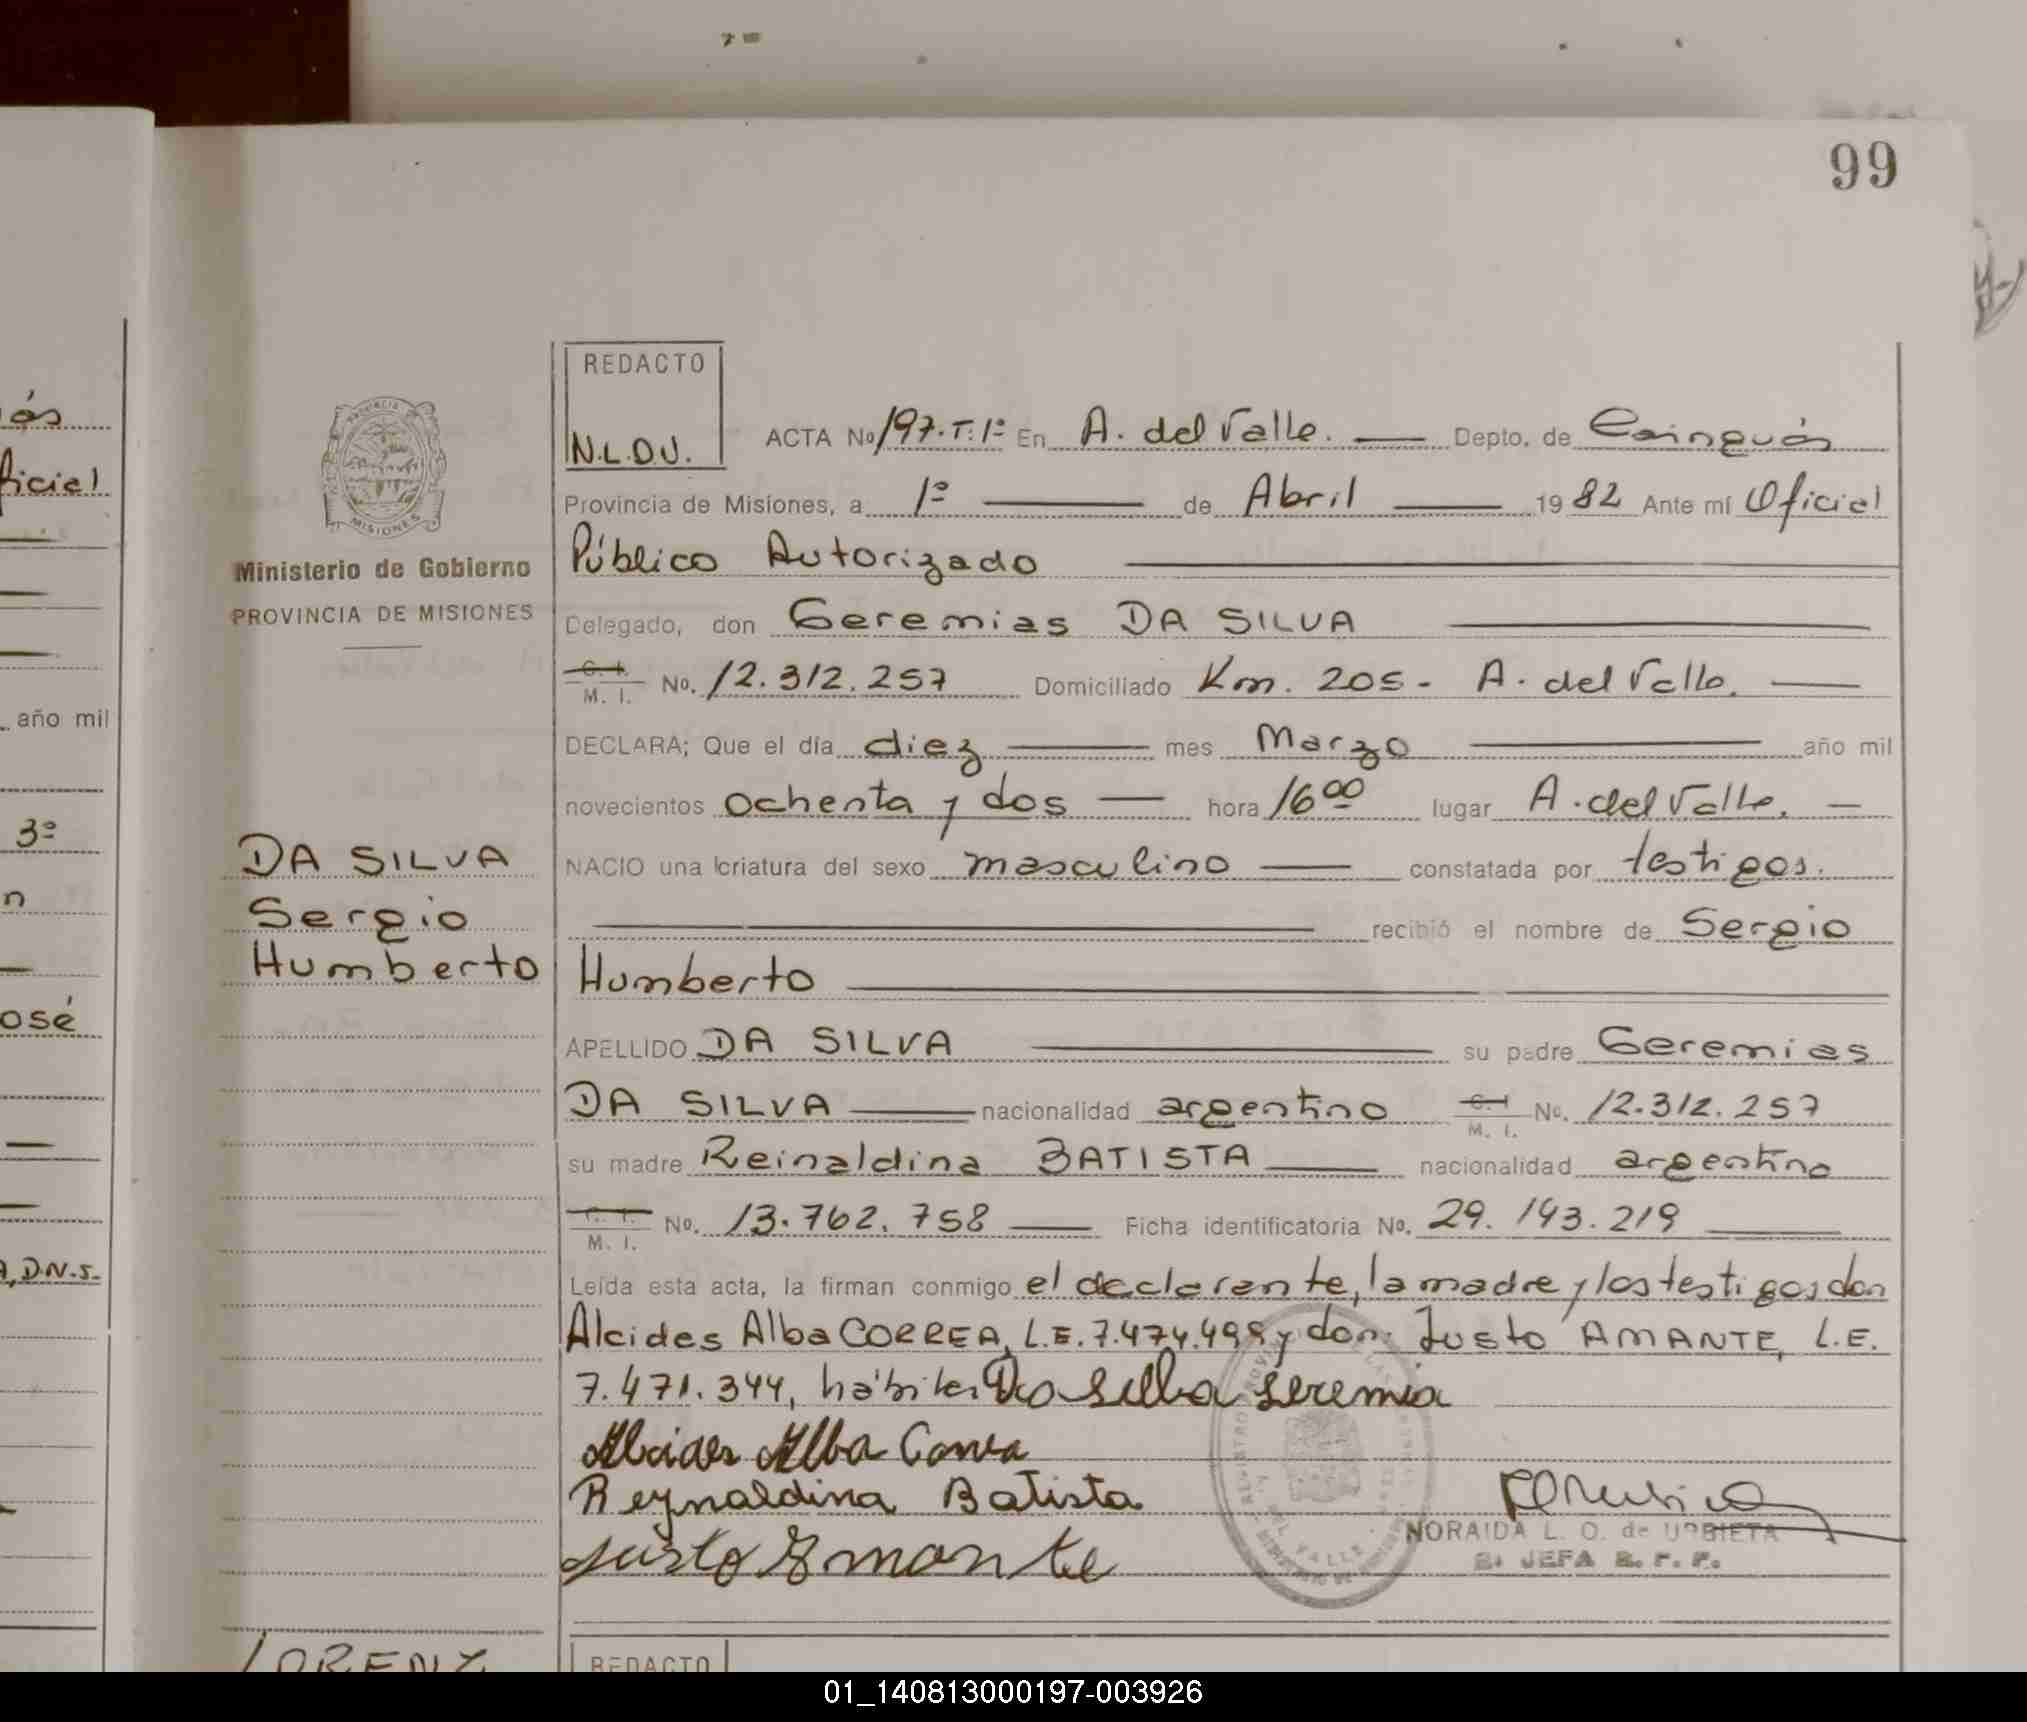 99
REDACTO
N.L.D.V.
ACTA No 197.T:1º En A. del Valle. Depto. de Cainguás
Provincia de Misiones, a 1º de Abril 1982 Ante mí Oficial
Público Autorizado
Delegado, don Geremias DA SILVA
C. I. M. I. No. 12.312.257 Domiciliado Km. 205- A. del Valle.
DECLARA; Que el día diez mes Marzo año mil
novecientos ochenta y dos hora 16 00 lugar A. del Valle.
NACIO una criatura del sexo masculino constatada por testigos.
recibió el nombre de Sergio
Humberto
APELLIDO DA SILVA su padre Geremias
DA SILVA nacionalidad argentino C. I. M. I. No. 12.312.257
su madre Reinaldina BATISTA nacionalidad argentina
C. I. M. I. No. 13.762.758 Ficha identificatoria No. 29.143.219
Leída esta acta, la firman conmigo el declarante, la madre y los testigos don
Alcides Alba CORREA, L.E. 7.474.499 y don: Justo AMANTE, L.E.
7.471.344, hábiles Da Silba Seremia
Alcides Alba Correa
Reynaldina Batista
Justo Amante
NORAIDA L. O. de URBIETA
JEFA
MISIONES
Ministerio de Gobierno
PROVINCIA DE MISIONES
DA SILVA
Sergio
Humberto
REDACTO
ficial
año mil
3º
n
osé
D.N.I.
01_140813000197-003926